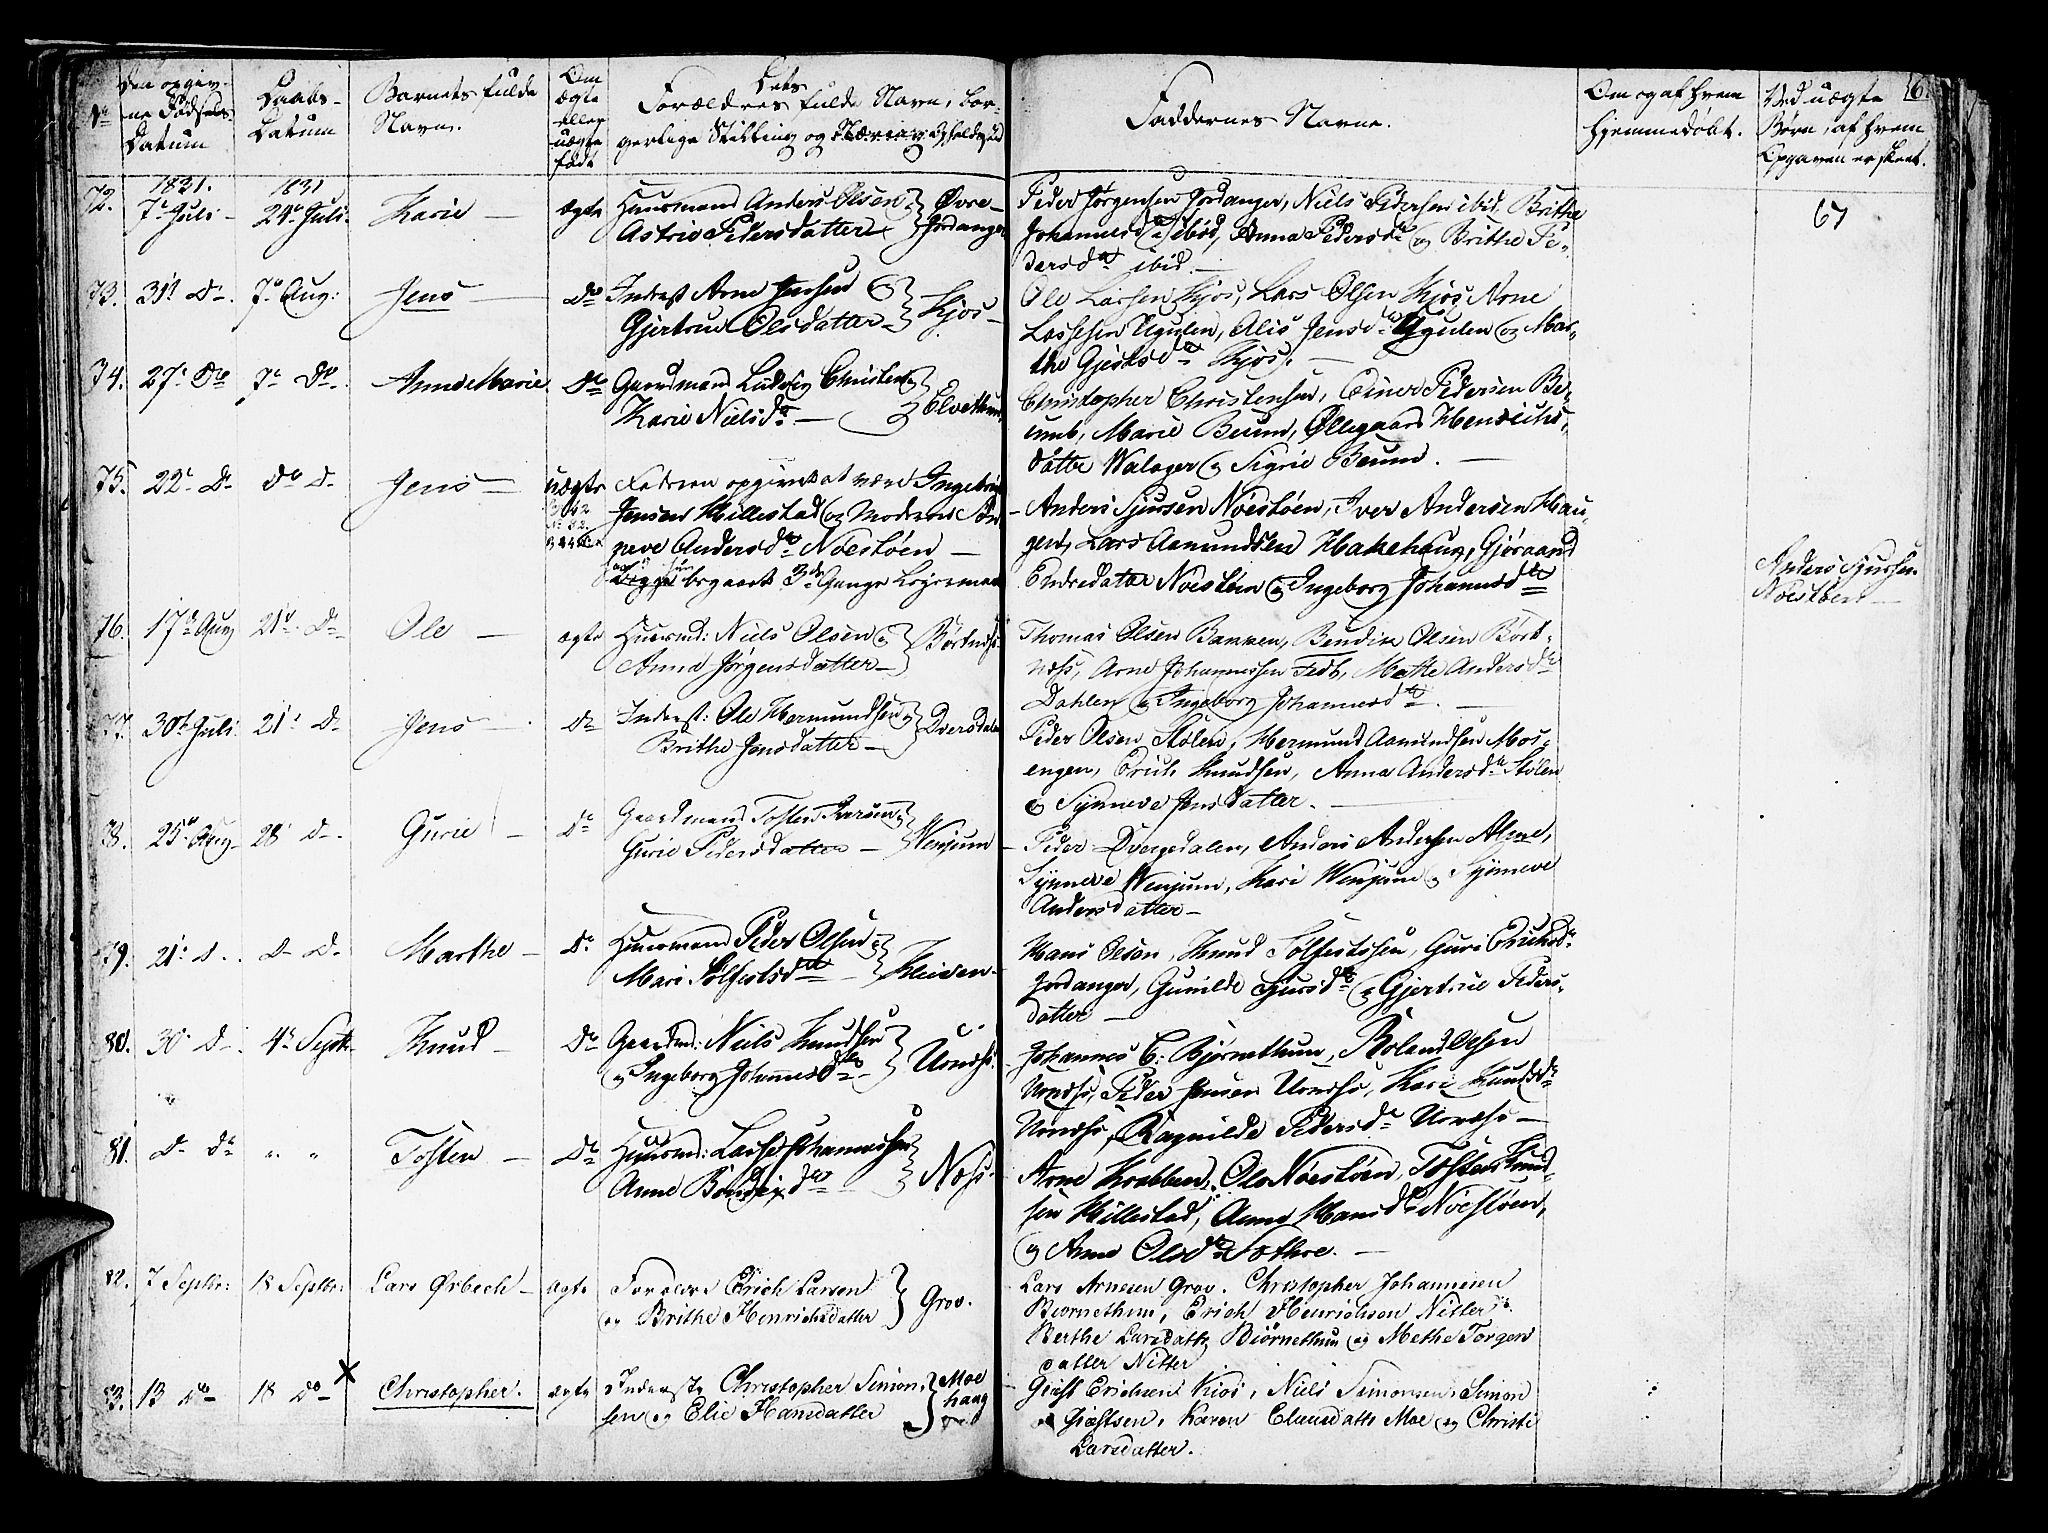 No
Den opgiv-
ne Fødsels
Datum
Daabs-
Datum
Barnets fulde
Navn.
Om
ægte
eller
uægte
født
Dets
Forældres fulde Navn, bor-
gerlige Stilling og Opholdssted
Faddernes Navne.
Om og af hvem
hjemmedøbt.
Ved uægte
Børn, af hvem
Opgaven er skeet.
67
72. 1831. 7de Juli 1831 24de Juli Karie ægte Huusmand Anders Olsen og Øvre
Astrid Pedersdatter Jordanger
Peder Jørgensen Jordanger, Niels Pedersen ibid. Brithe
Johannesd. ibid, Anna Pedersdr og Brithe Pe-
dersdr ibid.
73. 31te Do 7de Aug: Jens Do Inderst Arne Jensen og Kjos
Gjertrud Olsdatter
Ole Larsen Kjos, Lars Olsen Kjos, Arne
Lassesen Ugulen, Alis Jensdr Ugulen og Mar-
the Gjertsdr Kjos.
74. 27de Do 7de Do Anne Marie Do Gaardmand Ludvig Christens.
Karie Nielsdr
Christopher Christensen, Einer Pedersen Be-
umb, Marie Beum, Øllegaard Henrichs-
datter Walager og Sigrie Beum.
75. 22de Do Do Do Jens uægte Faderen opgivet at være Ingebrigt
Jensen Hillestad og Moderen Syn-
neve Andersdr Nøestøen
begaaet 3de Gange Leiermaal
Anders Sjursen Nøestøen, Iver Andersen Hau-
gen, Lars Aamundsen Hakehaug, Gjøraand
Endredatter Nøestøen og Ingeborg Johannesdr
Anders Sjursen
Nøestøen
76. 17de Aug 21de Do Ole ægte Huusmd: Niels Olsen og Børtnæs
Anna Jørgensdatter
Thomas Olsen Bakken, Bendix Olsen Bört-
næss, Arne Johannessen Fedt, Methe Andersdr
Dahlen og Ingeborg Johannesdr.
77. 30te Juli 21de Do Jens Do Inderst: Ole Hermundsen og Dversdalen
Brithe Jensdatter
Peder Olsen Stølen, Hermund Aamundsen Mos-
engen, Erich Knudsen, Anna Andersdr Stølen
og Synneve Jensdatter.
78. 25de Aug 28de Do Gurie Do Gaardmand Tosten Iversen og Wenjum
Gurie Pedersdatter
Peder Dvergedalen, Anders Andersen Alme,
Synneve Wenjum, Kari Wenjum og Synneve
Andersdatter
79. 21de D. Do Do Marthe Do Huusmand Peder Olsen og Kleiven
Mari Sølfestsdr
Hans Olsen, Knud Solfestssen, Guri Erichsdr
Jordanger, Gunilde Sjursdr og Gjertrue Peders-
datter
80. 30 Do 4de Septr Knud Do Gaardmd: Niels Knudsen Urnæss.
og Ingeborg Johannesdr
Johannes C. Bjørnethun, Roland Olsen
Urnæss, Peder Jensen Urnæss, Kari Knudsdr
Urnæss, Ragnilde Pedersdr Urnæss
81. Do Do " " Tosten Do Huusmd: Lasse Johannessen Næss.
Anne Bendixdr
Arne Krabben, Ole Nøestøen, Tosten Knud-
sen Hillestad, Anna Hansdr Nøestøen,
og Anne Olsdr
82. 7 Septbr: 18 Septbr: Lars Ørbech ægte Forældre Erich Larsen Grov.
og Brithe Henrichsdatter
Lars Arnesen Grov. Christopher Johannesen
Bjørnethun, Erich Henrichsen Nitter
Berthe Larsdattr Biørnethun og Methe Torgers
datter Nitter
83. 13 Do 18 Do X Christopher. ægte Inderste Christopher Simon- Moe
sen og Elie Hansdatter haug
Giest Erichsen Kios, Niels Simonsen, Simon
Giestsen, Karen Clausdattr Moe og Christi
Larsdatter.